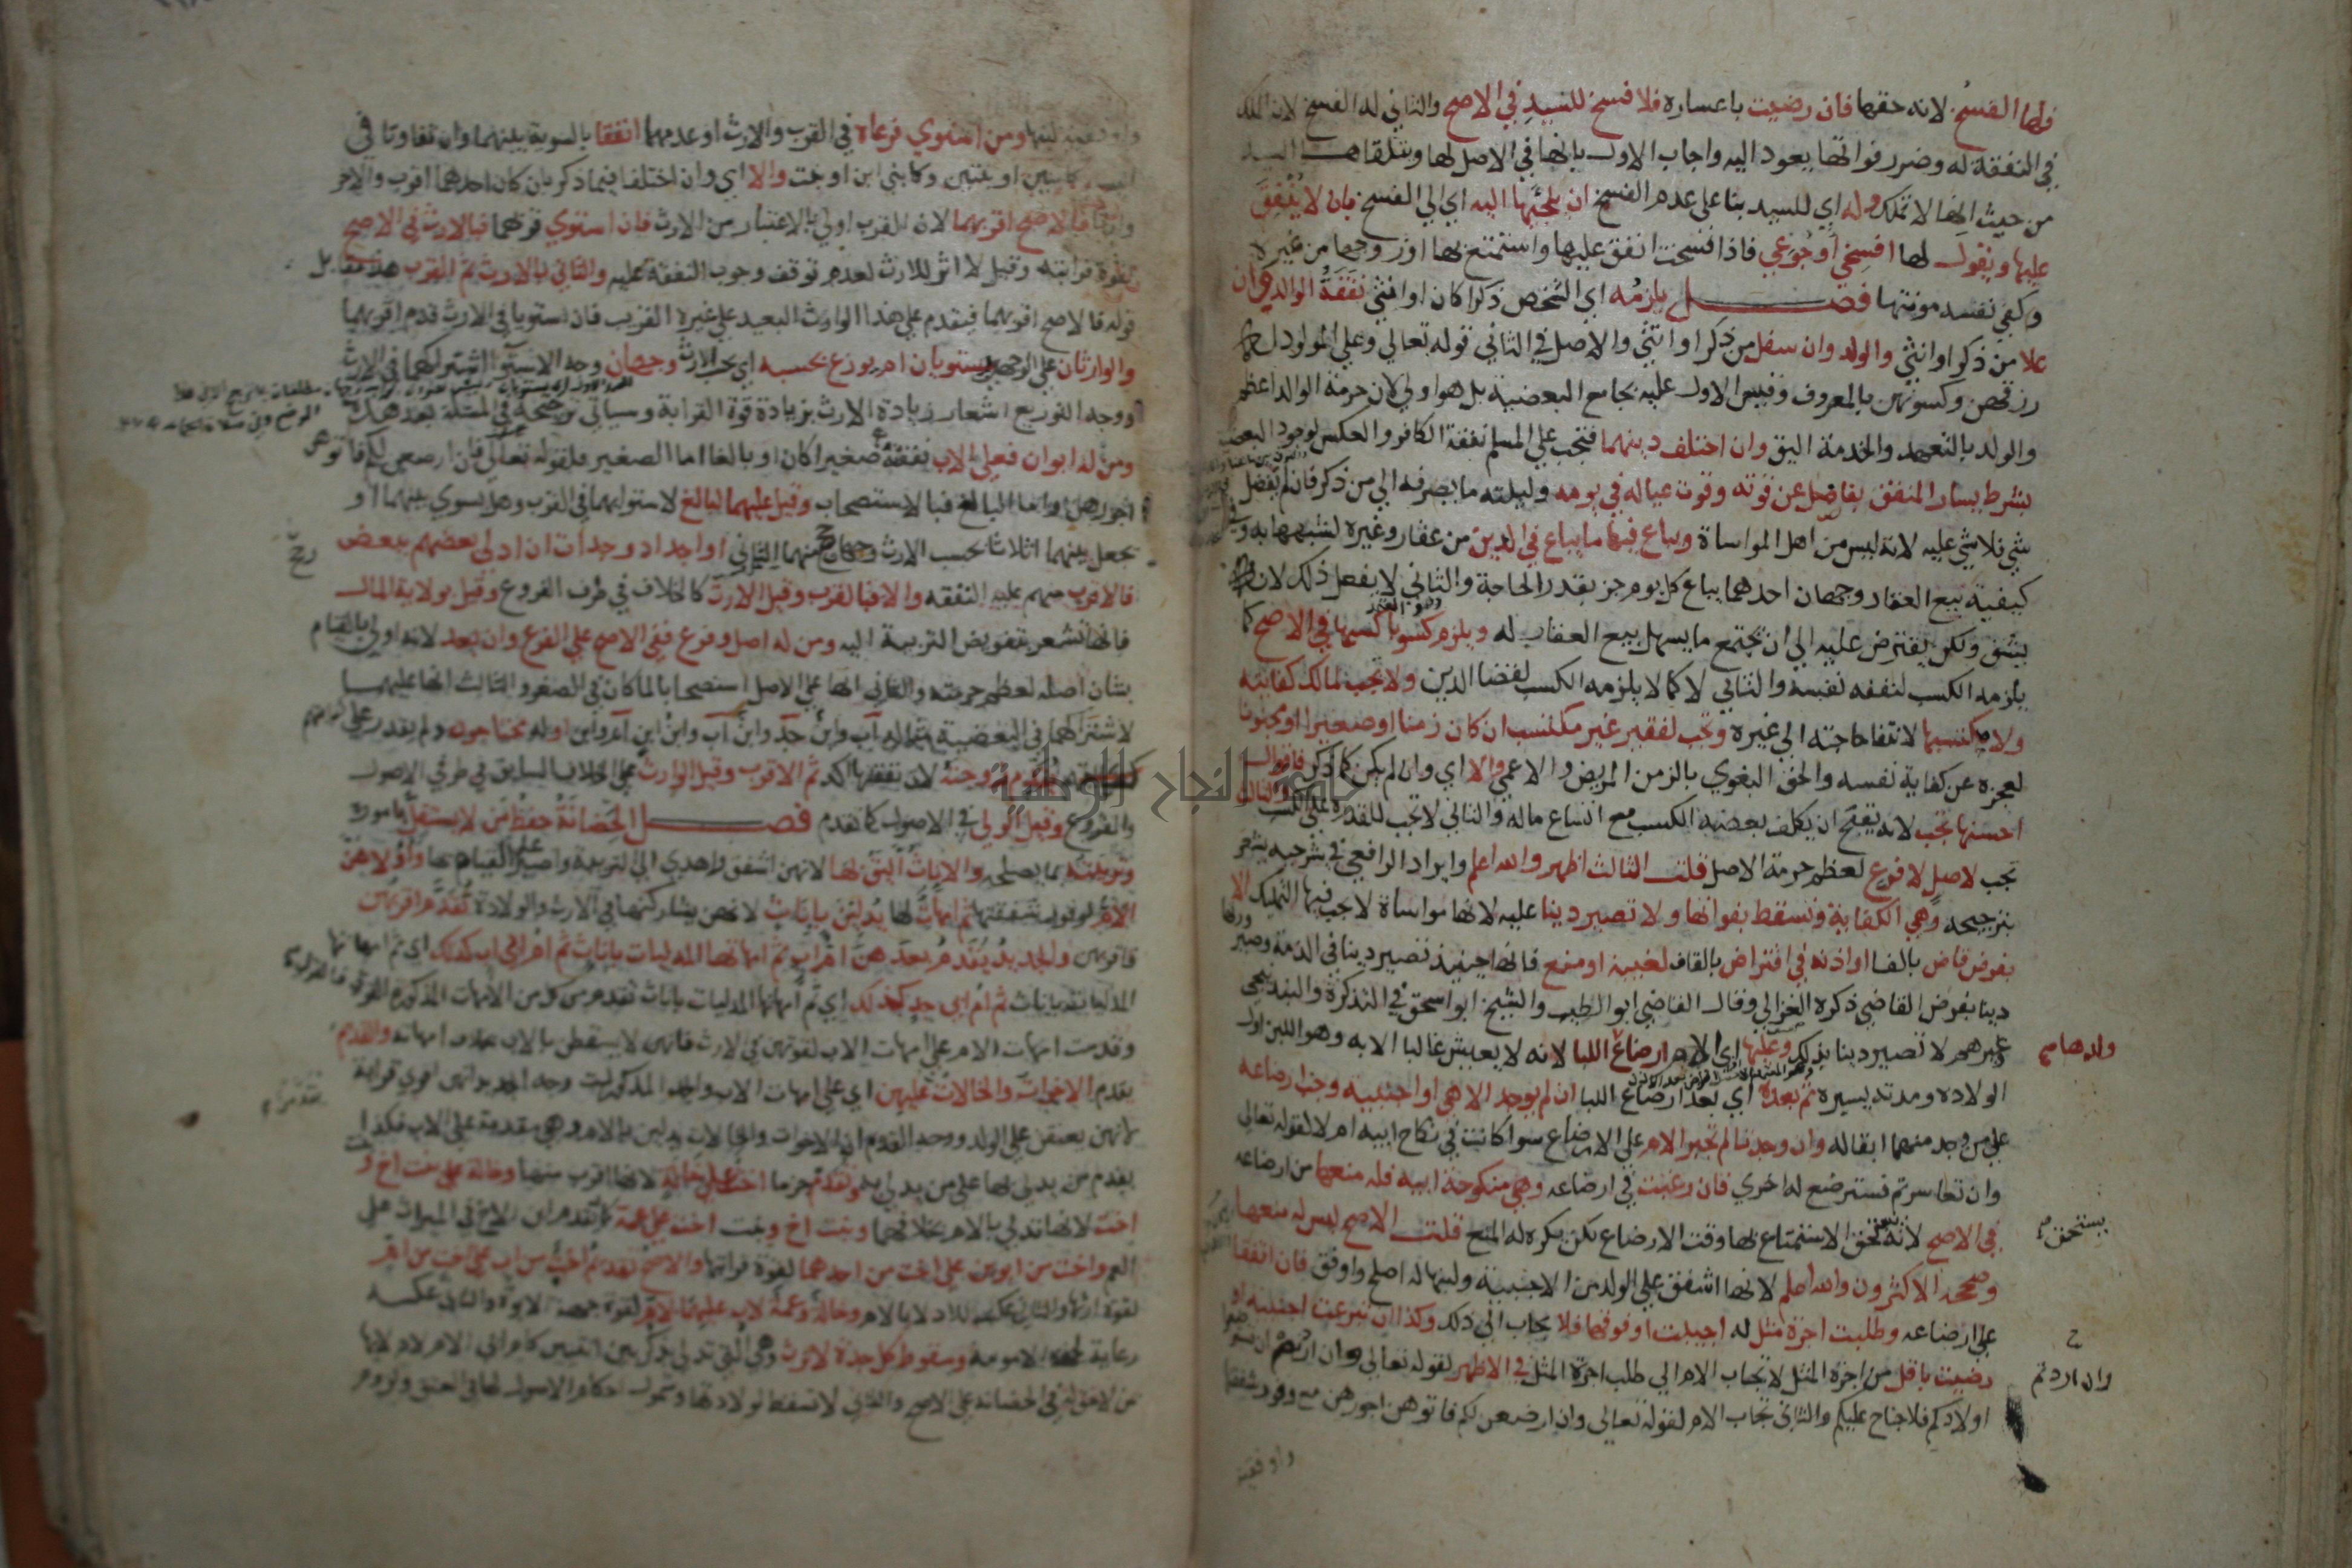 فلها الفسخ لانه حقها فان رضيت باعساره فلا فسخ للسيد في الاصح والثاني له الفسخ لان الملك
في النفقة له وضرر فواتها يعود اليه واجاب الاول بانها في الاصل لها ويتلقاها السيد
من حيث انها لا تملك وله اي للسيد بنا على عدم الفسخ ان يلجئها اليه اي الي الفسخ بان لا ينفق
عليها ويقول لها افسخي او جوعي فاذا فسخت انفق عليها واستمتع بها او زوجها من غيره
وكفي نفسه مونتها فصل يلزمه اي الشخص ذكرا كان او انثي نفقة الوالد وان
علا من ذكر او انثي والولد وان سفل من ذكر او انثي والاصل في الثاني قوله تعالي وعلي المولود له
رزقهن وكسوتهن بالمعروف وقيس الاول عليه بجامع البعضية بل هو اولي لان حرمة الوالد اعظم
والولد بالتعهد والخدمة اليق وان اختلف دينهما فتجب علي المسلم نفقة الكافر والعكس لوجود البعضية
بشرط يسار المنفق بفاضل عن قوته وقوت عياله في يومه وليلته ما يصرفه الي من ذكر فان لم يفضل
شي فلا شي عليه لانه ليس من اهل المواساة ويباع فيها ما يباع في الدين من عقار وغيره لشبهها به وفي
كيفية بيع العقار وجهان احدهما يباع كل يوم جز بقدر الحاجة والثاني لا يفعل ذلك لانه
يشق ولكن يقترض عليه الي ان يجتمع ما يسهل بيع العقار له ويلزم كسوبا كسبها في الاصح كما
يلزمه الكسب لنفقه نفسه والثاني لا كما لا يلزمه الكسب لقضا الدين ولا تجب لمالك كفايته
ولا مكتسبها لانتفا حاجته الي غيره وتجب لفقير غير مكتسب ان كان زمنا او صغيرا او مجنونا
لعجزه عن كفاية نفسه والحق البغوي بالزمن المريض والاعمي والا اي وان لم يكن كما ذكر فاقوال
احسنها تجب لانه يقبح ان يكلف بعضه الكسب مع اتساع ماله والثاني لا تجب للقدرة علي الكسب والثالث
تجب لاصل لا فرع لعظم حرمة الاصل قلت الثالث اظهر والله اعلم وايراد الرافعي في شرحيه يشعر
بترجيحه وهي الكفاية وتسقط بفواتها ولا تصير دينا عليه لانها مواساة لا يجب فيها التمليك الا
بفرض قاض بالفا او اذنه في اقتراض بالقاف لغيبة او منع فانها حينئذ تصير دينا في الذمة وصير
دينا بفرض القاضي ذكره الغزالي وقال القاضي ابو الطيب والشيخ ابو اسحق في التذكرة والبندنيجي
وغيرهم لا تصير دينا بذلك وعليها اي الام ارضاع اللبا لانه لا يعيش غالبا الا به وهو اللبن اول
ولدها صح
الولاده ومدته يسيره ثم بعده اي بعد ارضاع اللبا ان لم يوجد الا هي او اجنبية وجب ارضاعه
علي من وجد منهما ابقا له وان وجدتا لم تجبر الام علي الارضاع سوا كانت في نكاح ابيه ام لا لقوله تعالي
وان تعاسرتم فسترضع له اخري فان رغبت في ارضاعه وهي منكوحة ابيه فله منعها من ارضاعه
في الاصح لانه يستحق الاستمتاع بها وقت الارضاع لكن يكره له المنع قلت الاصح ليس له منعها
يستحق
وصححه الاكثرون والله اعلم لانها اشفق علي الولد من الاجنبية ولبنها له اصلح واوفق فان اتفقا
علي ارضاعه وطلبت اجرة مثل له اجيبت او فوقها فلا يجاب الي ذلك وكذا ان تبرعت اجنبية او
رضيت باقل من اجرة المثل لا تجاب الام الي طلب اجرة المثل في الاظهر لقوله تعالي وان اردتم ان تسترضعوا
وان اردتم
اولادكم فلا جناح عليكم والثاني تجاب الام لقوله تعالي وان ارضعن لكم فاتوهن اجورهن مع وفور شفقتها
ومن استوي فرعاه في القرب والارث او عدمهما انفقا بالسوية بينهما وان تفاوتا في
كابنين او بنتين وكابني ابن او بنت والا اي وان اختلفا فيما ذكر بان كان احدهما اقرب والاخر
وارثا فالاصح اقربهما لان القرب اولي بالاعتبار من الارث فان استوي قربهما فبالارث في الاصح
لقوة قرابته وقيل لا اثر للارث لعدم توقف وجوب النفقة عليه والثاني بالارث ثم القرب هذا مقابل
قوله فالاصح اقربهما فيقدم علي هذا الوارث البعيد علي غيره القريب فان استويا في الارث قدم اقربهما
والوارثان علي الوجهين يستويان ام يوزع بحسبه اي بحسب الارث وجهان وجه الاستوا اشتراكهما في الارث
ووجه التوزيع اشعار زيادة الارث بزيادة قوة القرابة وسياتي ترجيحه في المسئلة بعد هذه
ومن له ابوان فعلي الاب نفقته صغيرا كان او بالغا اما الصغير فلقوله تعالي فان ارضعن لكم فاتوهن
اجورهن واما البالغ فبالاستصحاب وقيل عليهما لبالغ لاستوايهما في القرب وهل يسوي بينهما او
يجعل بينهما اثلاثا بحسب الارث وجهان رجح منهما الثاني او اجداد وجدات ان ادلي بعضهم ببعض
رجح
فالاقرب منهم عليه النفقه والا فبالقرب وقيل الارث كالخلاف في طرف الفروع وقيل بولاية المال
فانها تشعر بتفويض التربية اليه ومن له اصل وفرع ففي الاصح علي الفرع وان بعد لانه اولي بالقيام
بشان اصله لعظم حرمته والثاني انها علي الاصل استصحابا لما كان في الصغر والثالث انها عليهما
لاشتراكهما في البعضية مثاله اب وابن جد وابن اب وابن ابن ام وابن او له محتاجون ولم يقدر علي كفايتهم
قدم زوجته لان نفقتها اكد ثم الاقرب وقيل الوارث علي الخلاف السابق في طرفي الاصول
والفروع وقيل الولي في الاصول كما تقدم فصل الحضانة حفظ من لا يستقل باموره
وتربيته بما يصلحه والاناث اليق بها لانهن اشفق واهدي الي التربية واصبر علي القيام بها واولاهن
الام لوفور شفقتها ثم امهات لها يدلين باناث لانهن يشاركنها في الارث والولادة تقدم اقربهن
فاقربهن والجديد يقدم بعدهن ام اب ثم امهاتها المدليات باناث ثم ام ابي اب كذلك اي ثم امهاتها
المدليات باناث ثم ام ابي جد كذلك اي ثم امهاتها المدليات باناث تقدم من كل من الامهات المذكورة القربي فالقربي
وقدمت امهات الام علي امهات الاب لقوتهن في الارث فانهن لا يسقطن بالاب بخلاف امهاته والقديم
يقدم الاخوات والخالات عليهن اي علي امهات الاب والجد المذكورات وجه الجديد انهن اقوي قرابة
بانهن يعتقن علي الولد ووجه القديم ان الاخوات والخالات يدلين بالام وهي مقدمة علي الاب فكذا
يقدم من يدلي بها علي من يدلي به وتقدم جزما اخت علي خالة لانها اقرب منها وخالة علي بنت اخ و
اخت لانها تدلي بالام بخلافهما وبنت اخ وبنت اخت علي عمة كما تقدم ابن الاخ في الميراث علي
العم واخت من ابوين علي اخت من احدهما لقوة قرابتها والاصح تقديم اخت من اب علي اخت من ام
لقوة ارثها والثاني عكسه للادلا بالام وخالة وعمة لاب عليهما لام لقوة جهة الابوة والثاني عكسه
رعاية لجهة الامومة وسقوط كل جدة لا ترث وهي التي تدلي بذكر بين انثيين كام ابي الام لادلايها
من لا حق له في الحضانة علي الاصح والثاني لا تسقط لولادتها وشمول احكام الاصول لها في العتق ولزوم